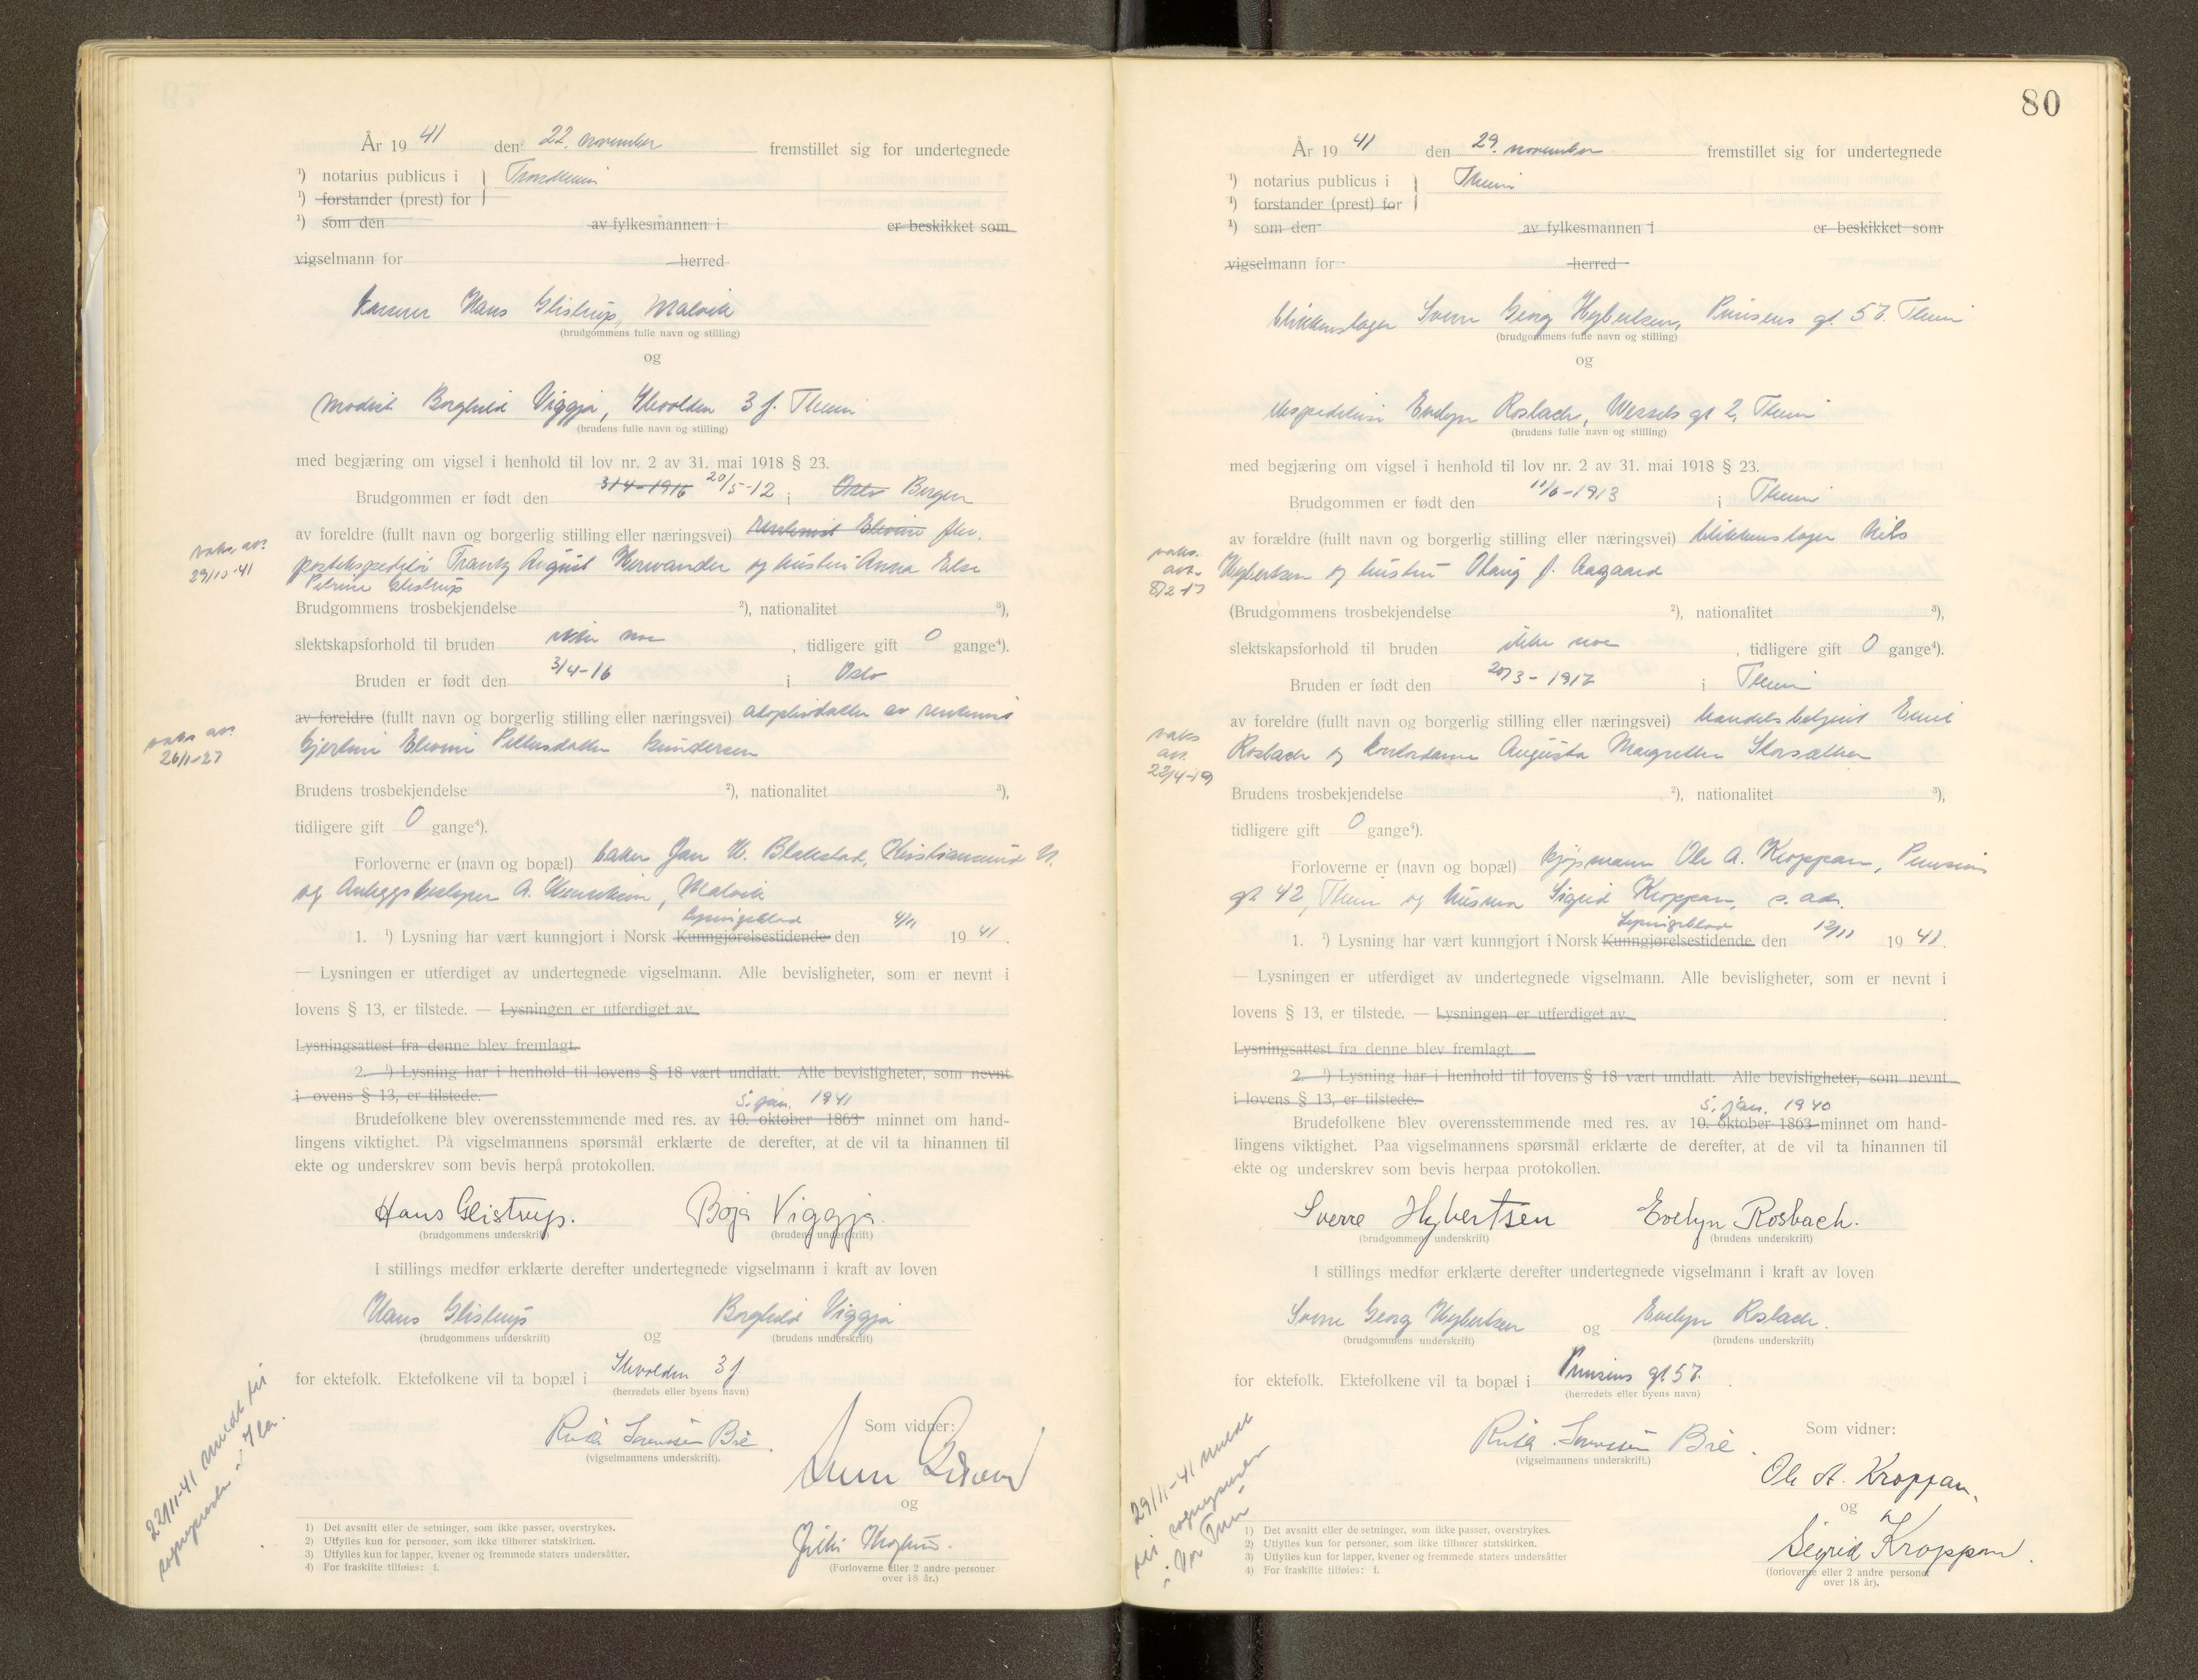 År 19 41 den 22. november fremstillet sig for undertegnede
¹) notarius publicus i Trondheim
¹) forstander (prest) for
¹) som den av fylkesmannen i er beskikket som
vigselmann for herred
Hans Glistrup, Malvik
(brudgommens fulle navn og stilling)
og
modist Borghild Viggja, Ilevolden 3 f. Th.eim
(brudens fulle navn og stilling)
med begjæring om vigsel i henhold til lov nr. 2 av 31. mai 1918 § 23.
Brudgommen er født den 3/4-1916 20/5-12 i Oslo Bergen
av foreldre (fullt navn og borgerlig stilling eller næringsvei) rentenist Elevine
postekspeditør Frantz August og hustru Anna Else
Petrine Glistrup
vaks. att.
29/10-41
Brudgommens trosbekjendelse ²), nationalitet ³),
slektskapsforhold til bruden ikke noe , tidligere gift 0 gange⁴).
Bruden er født den 3/4-16 i Oslo
av foreldre (fullt navn og borgerlig stilling eller næringsvei) adoptivdatter av rentenist
Gjertine Pettersdatter Gundersen
vaks. att.
26/1-27
Brudens trosbekjendelse ²), nationalitet ³),
tidligere gift 0 gange⁴).
Forloverne er (navn og bopæl) baker Jan H. Blakstad, Kristiansund N.
og Anleggsbestyrer A. , Malvik
Lysningsblad
1. ¹) Lysning har vært kunngjort i Norsk Kunngjørelsestidende den 4/11 19 41.
— Lysningen er utferdiget av undertegnede vigselmann. Alle bevisligheter, som er nevnt i
lovens § 13, er tilstede. — Lysningen er utferdiget av
Lysningsattest fra denne blev fremlagt.
2. ¹) Lysning har i henhold til lovens § 18 vært undlatt. Alle bevisligheter, som nevnt
i ovens § 13, er tilstede.
5. jan. 1941
Brudefolkene blev overensstemmende med res. av 10. oktober 1863 minnet om hand-
lingens viktighet. På vigselmannens spørsmål erklærte de derefter, at de vil ta hinannen til
ekte og underskrev som bevis herpå protokollen.
Hans Glistrup. Boja Viggja.
(brudgommens underskrift) (brudens underskrift)
I stillings medfør erklærte derefter undertegnede vigselmann i kraft av loven
Hans Glistrup og Borghild Viggja
(brudgommens underskrift) (brudens underskrift)
for ektefolk. Ektefolkene vil ta bopæl i Ilevolden 3 f
(herredets eller byens navn)
22/11-41 meldt til
sogneprest i Ila.
Som vidner:
(vigselmannens underskrift).
og
(Forloverne eller 2 andre personer
over 18 år.)
1) Det avsnitt eller de setninger, som ikke passer, overstrykes.
2) Utfylles kun for personer, som ikke tilhører statskirken.
3) Utfylles kun for lapper, kvener og fremmede staters undersåtter.
4) For fraskilte tilføies: f.
80
År 19 41 den 29. november fremstillet sig for undertegnede
¹) notarius publicus i Th.eim
¹) forstander (prest) for
¹) som den av fylkesmannen i er beskikket som
vigselmann for herred
blikkenslager Sverre Georg Hybertsen, Prinsens gt. 57. Th.eim
(brudgommens fulle navn og stilling)
og
ekspeditrise Evelyn Rosbach, Wessels gt 2, Th.eim
(brudens fulle navn og stilling)
med begjæring om vigsel i henhold til lov nr. 2 av 31. mai 1918 § 23.
Brudgommen er født den 11/6-1913 i Th.eim
av forældre (fullt navn og borgerlig stilling eller næringsvei) blikkenslager Nils
Hybertsen og hustru Olaug f. Aagaard
vaks.
att.
(Brudgommens trosbekjendelse ²), nationalitet ³),
slektskapsforhold til bruden ikke noe , tidligere gift 0 gange⁴).
Bruden er født den 20/3-1917 i Th.eim
av foreldre (fullt navn og borgerlig stilling eller næringsvei) handelsbetjent Emil
Rosbach og kontordame Augusta Margrethe Storsæther
vaks
att.
22/4-19
Brudens trosbekjendelse ²), nationalitet ³),
tidligere gift 0 gange⁴).
Forloverne er (navn og bopæl) kjøpmann Ole A. Kroppan, Prinsens
gt 42, Th.eim og hustru Sigrid Kroppan, s. adr.
Lysningsblad
1. ¹) Lysning har vært kunngjort i Norsk Kunngjørelsestidende den 12/11 19 41.
— Lysningen er utferdiget av undertegnede vigselmann. Alle bevisligheter, som er nevnt i
lovens § 13, er tilstede. — Lysningen er utferdiget av
Lysningsattest fra denne blev fremlagt.
2. ¹) Lysning har i henhold til lovens § 18 vært undlatt. Alle bevisligheter, som nevnt
i lovens § 13, er tilstede.
5. jan. 1940
Brudefolkene blev overensstemmende med res. av 10. oktober 1863 minnet om hand-
lingens viktighet. Paa vigselmannens spørsmål erklærte de derefter, at de vil ta hinannen til
ekte og underskrev som bevis herpaa protokollen.
Sverre Hybertsen Evelyn Rosbach.
(brudgommens underskrift) (brudens underskrift)
I stillings medfør erklærte derefter undertegnede vigselmann i kraft av loven
Sverre Georg Hybertsen og Evelyn Rosbach.
(brudgommens underskrift) (brudens underskrift)
for ektefolk. Ektefolkene vil ta bopæl i Prinsens gt. 57.
(herredets eller byens navn)
29/11-41 meldt
til sognepresten
i Vor Frue
Som vidner:
(vigselmannens underskrift.)
Ole A. Kroppan.
og
Sigrid Kroppan.
(forloverne eller 2 andre personer
over 18 år).
1) Det avsnitt eller de setninger, som ikke passer, overstrykes.
2) Utfylles kun for personer, som ikke tilhører statskirken.
3) Utfylles kun for lapper, kvener og fremmede staters undersåtter
4) For fraskilte tilføies: f.